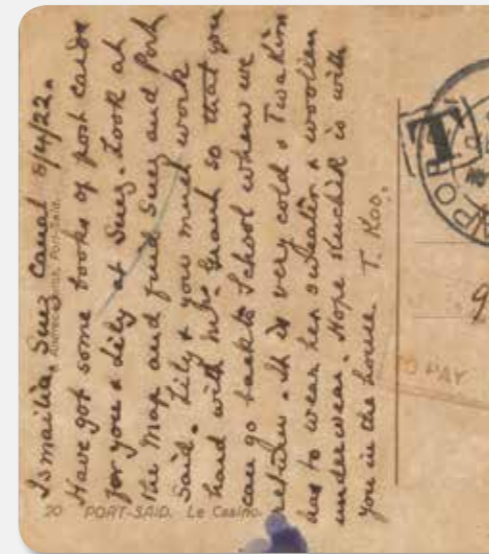 Ismailia, Suez Canal 8/4/22.
Have got some books of post cards
for you & Lily at Suez. Look at
the Map and find Suez and Port
Said. Lily & you must work
hard with Mrs. Grant so that you
can go back to School when we
return. It is very cold &
has to wear her sweater & woollen
underwear. Hope is with
you in the house. T. Koo.
Port-Said.
20 PORT-SAID. Le Casino.
T
POR
9
TO PAY